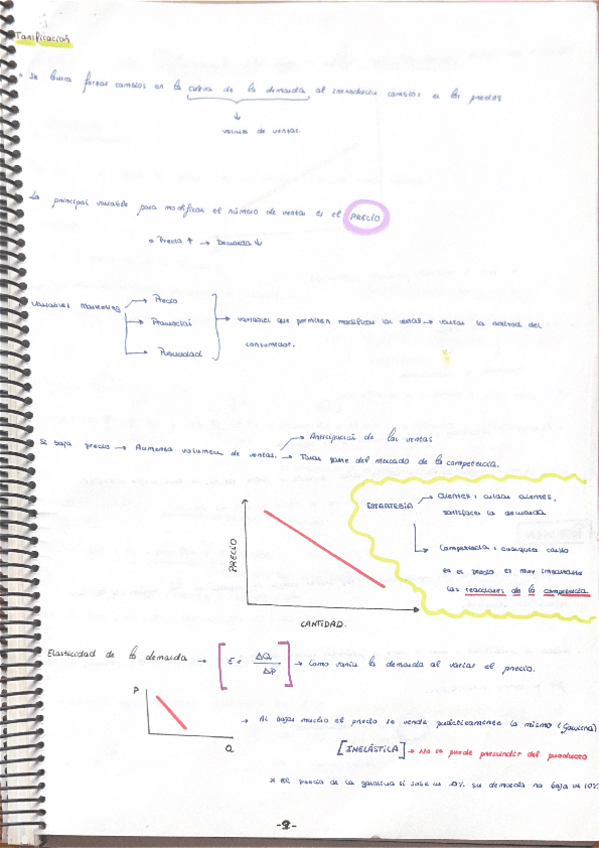 Tarificación
• Se busca forzar cambios en la curva de la demanda al introducir cambios en los precios
↓
volumen de ventas.
La principal variable para modificar el número de ventas es el PRECIO
Precio ↑ → Demanda ↓
Variables marketing → Precio
→ Promoción
→ Publicidad
→ variables que permiten modificar las ventas → variar la actitud del consumidor.
Si baja precio → Aumenta volumen de ventas. → Anticipación de las ventas
→ Tomas parte del mercado de la competencia.
ESTRATEGIA → Clientes: cuidar clientes, satisfacer la demanda
→ Competencia: cualquier cambio en el precio es muy importante las reacciones de la competencia
PRECIO
CANTIDAD.
Elasticidad de la demanda → [ε = ΔQ / ΔP] → Como varía la demanda al variar el precio.
P
Q
→ Al bajar mucho el precio se vende prácticamente lo mismo (Gasolina)
[INELÁSTICA] → No se puede prescindir del producto
* El precio de la gasolina si sube un 10% su demanda no baja un 10%